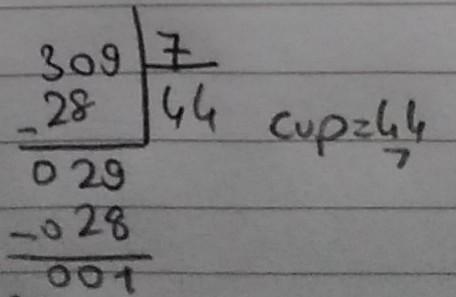 309 7
-28 44 cup=44
029
-028
001